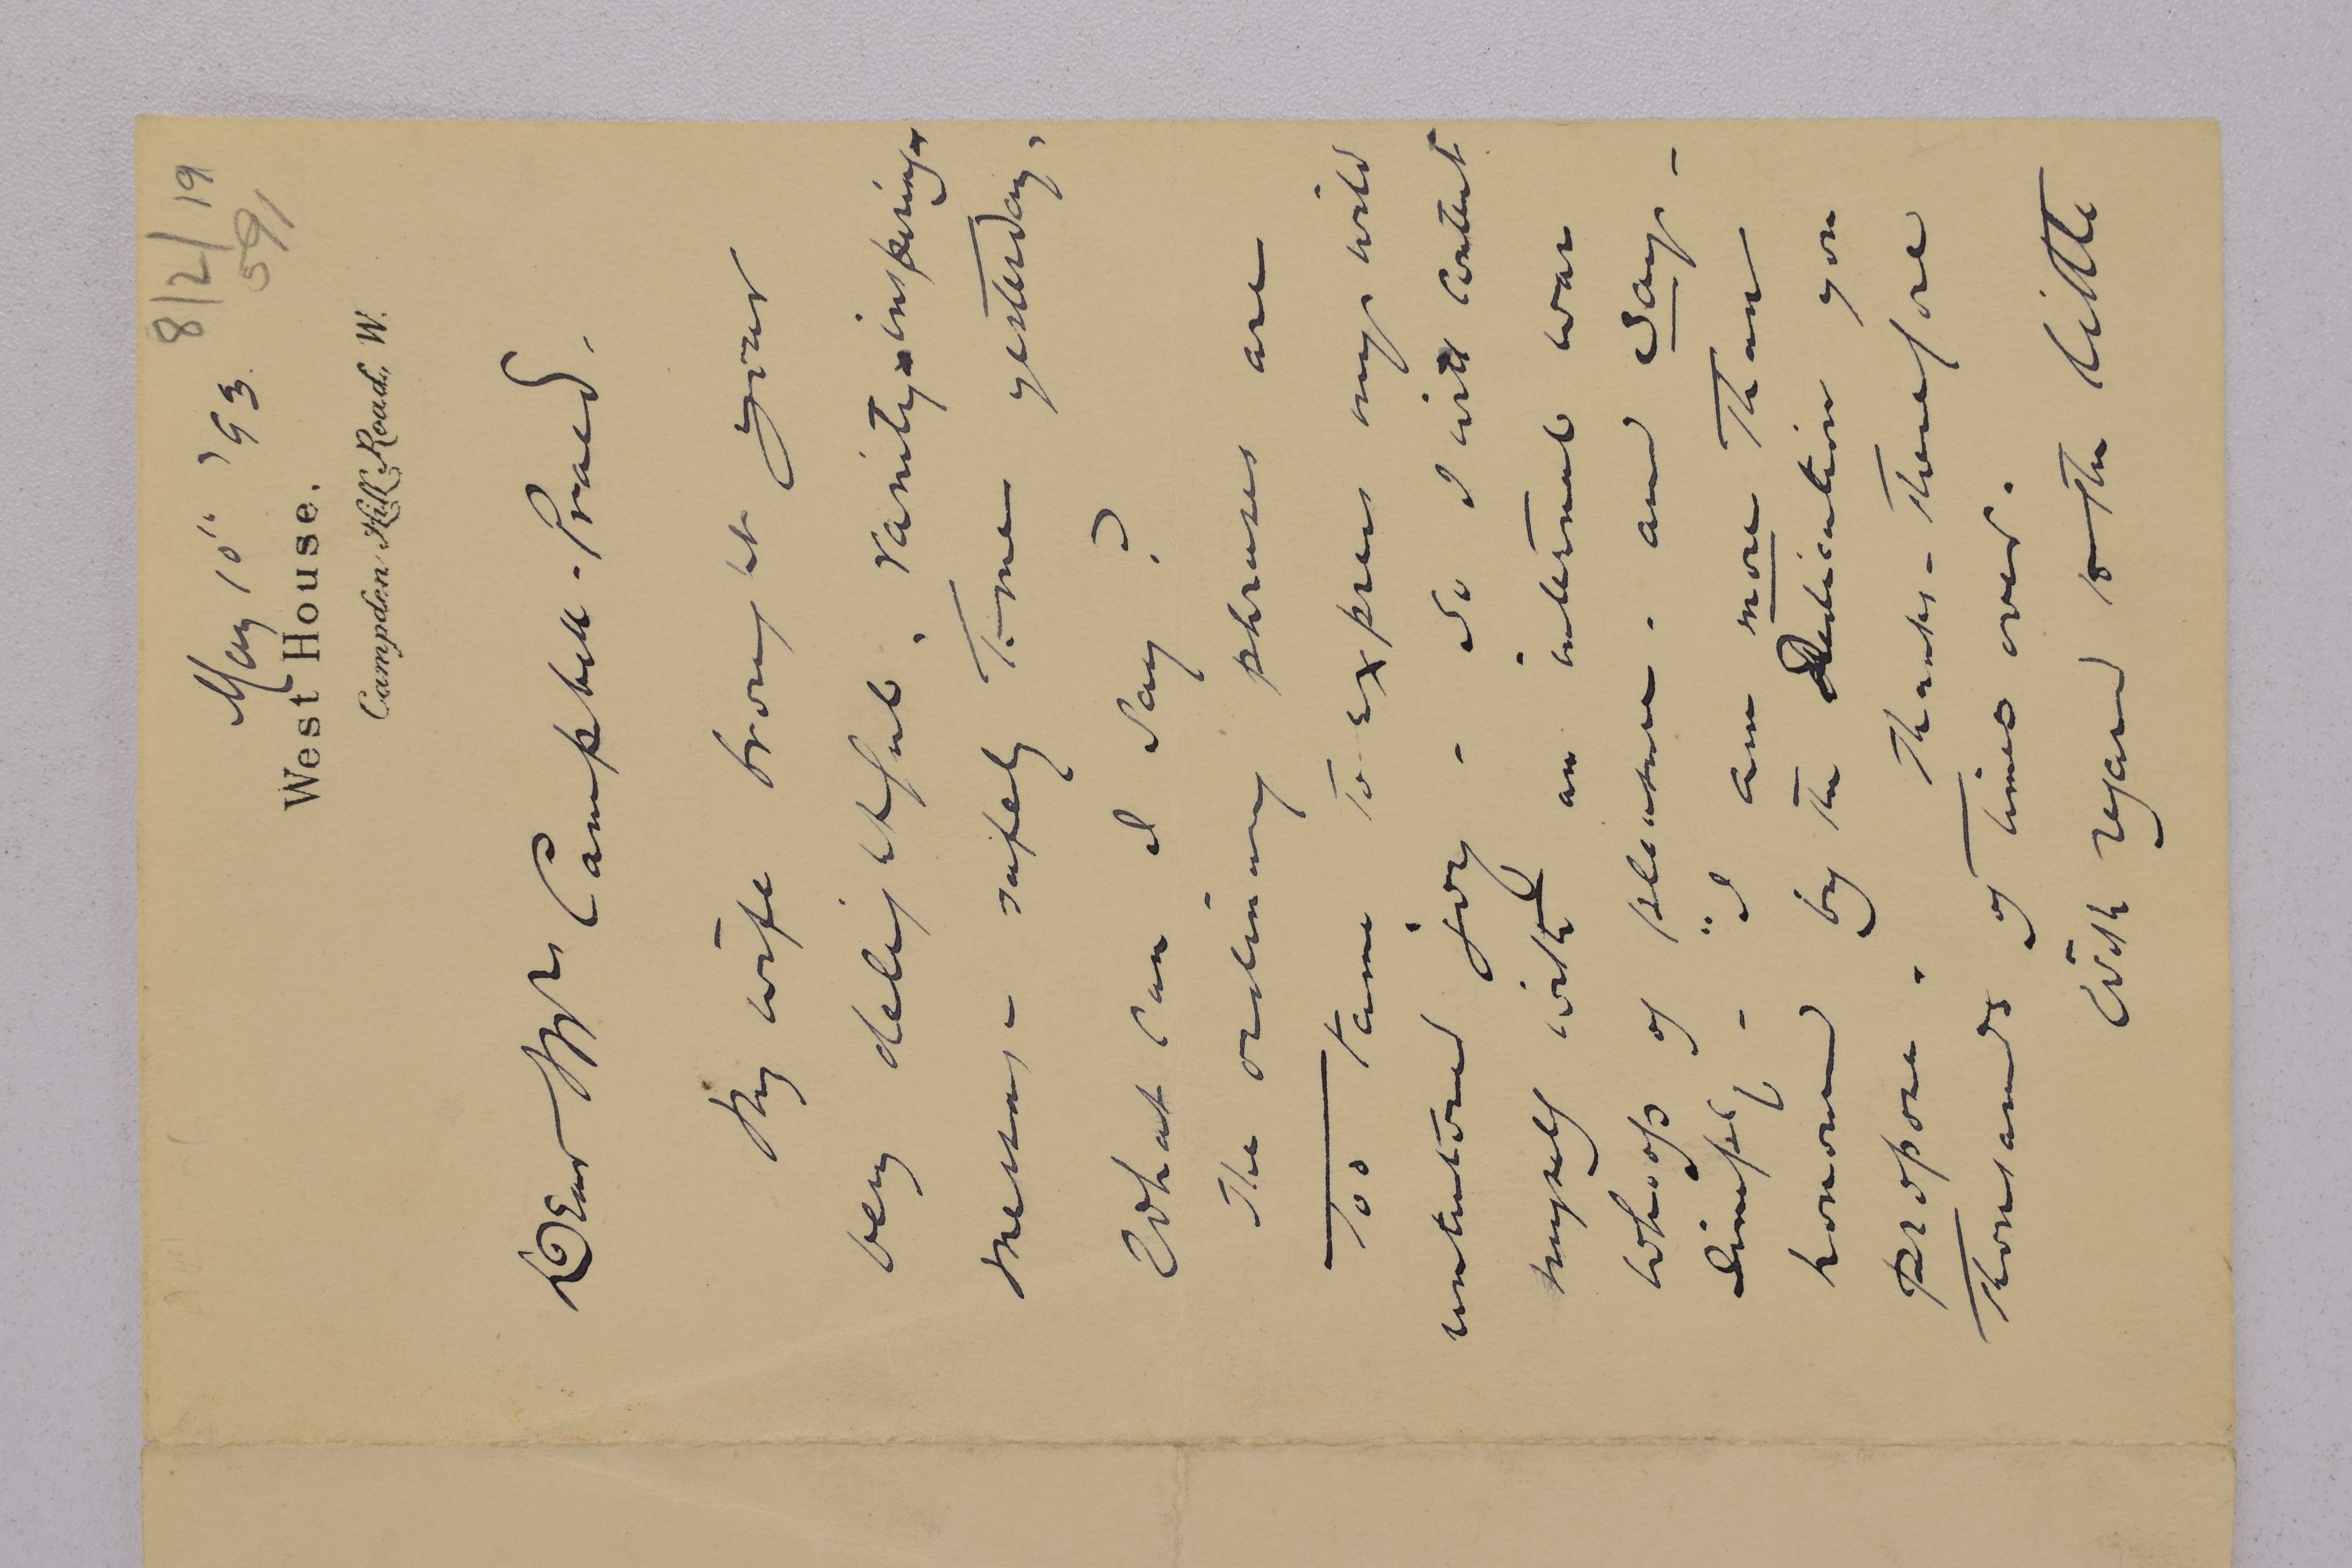 8/2/19
591
May 10th '93.
West House.
Campden Hill Road, W.
Dear Mrs Campbell-Praed,
My wife brought your
very delightful, vanity-inspiring
message safely home yesterday.
What can I say?
The ordinary phrases are
too tame to express my wild
untutored joy - So I will content
myself with an internal war
whoop of pleasure - and say -
simply - "I am more than
honored by the Dedication you
propose. Thanks - therefore
thousands of times over.
With regard to the little